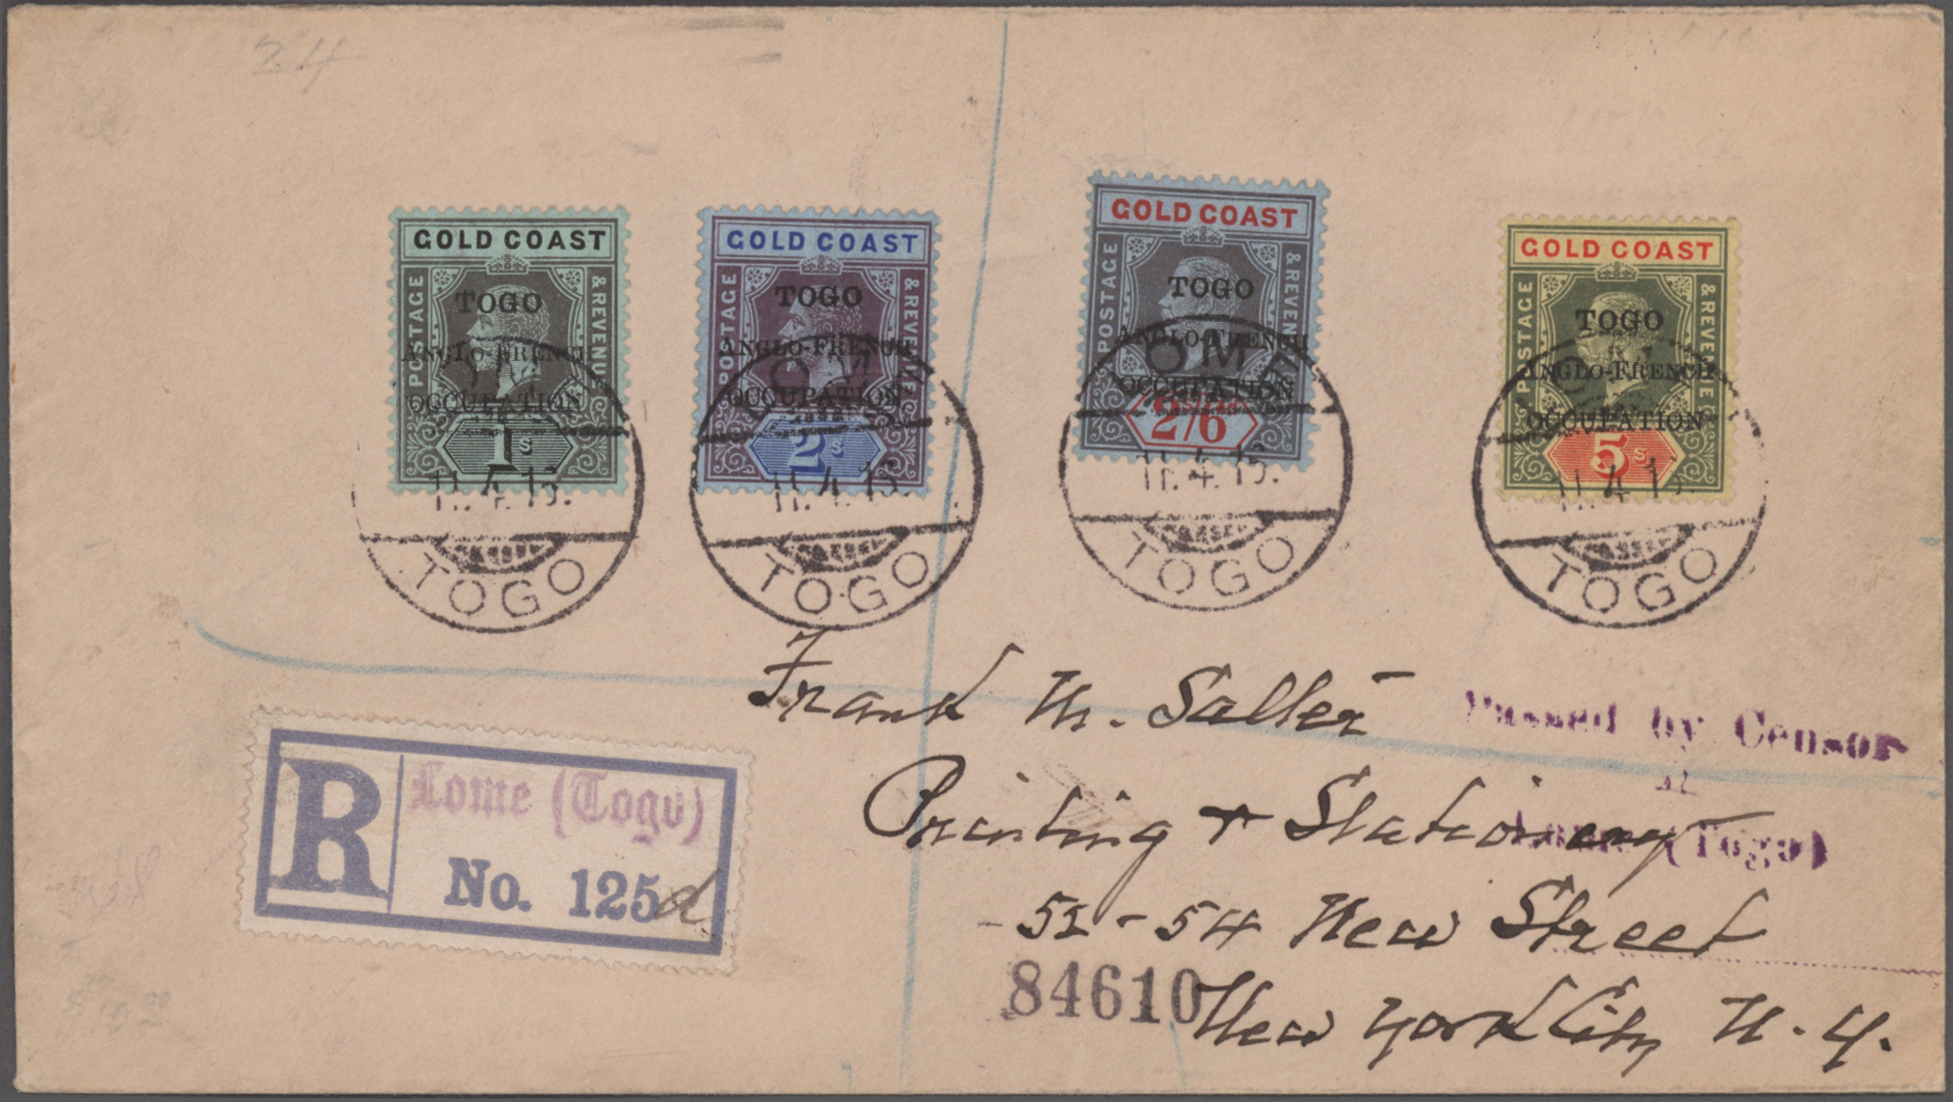 24
GOLD COAST
POSTAGE & REVENUE
TOGO
ANGLO-FRENCH
OCCUPATION
1s
GOLD COAST
POSTAGE & REVENUE
TOGO
ANGLO-FRENCH
OCCUPATION
2s
GOLD COAST
POSTAGE & REVENUE
TOGO
ANGLO-FRENCH
OCCUPATION
2/6
GOLD COAST
POSTAGE & REVENUE
TOGO
ANGLO-FRENCH
OCCUPATION
5s
LOME
11.4.15.
TOGO
LOME
11.4.15.
TOGO
LOME
11.4.15.
TOGO
LOME
11.4.15.
TOGO
Frank M. Saller
Passed by Censor
at
Lome (Togo)
R
Lome (Togo)
No. 125d
Printing & Stationery
52-54 New Street
84610
New York City N.Y.